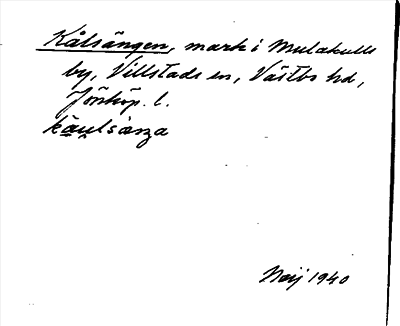 Kålsängen, mark i Mulakulls
by, Villstads sn, Västbo hd,
Jönköp. l.
kau̯lsæŋa
Maij 1940